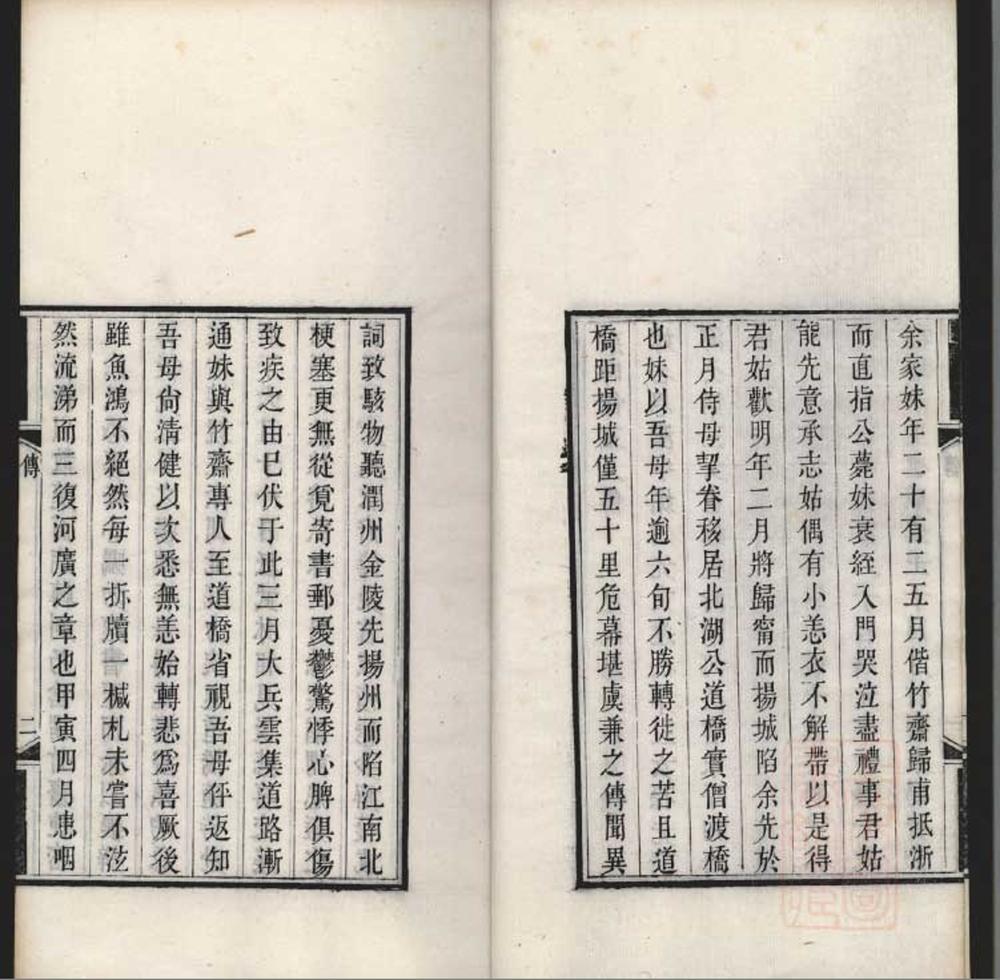 余家妹年二十有二五月偕竹齋歸甫抵浙
而直指公薨妹衰絰入門哭泣盡禮事君姑
能先意承志姑偶有小恙衣不解帶以是得
君姑歡明年二月將歸甯而揚城陷余先於
正月侍母挈眷移居北湖公道橋實僧渡橋
也妹以吾母年逾六旬不勝轉徙之苦且道
橋距揚城僅五十里危幕堪虞兼之傳聞異
詞致駭物聽潤州金陵先揚州而陷江南北
梗塞更無從覓寄書郵憂鬱驚悸心脾俱傷
致疾之由已伏于此三月大兵雲集道路漸
通妹與竹齋專人至道橋省視吾母伻返知
吾母尚清健以次悉無恙始轉悲爲喜厥後
雖魚鴻不絕然每一拆牘一椷札未嘗不泫
然流涕而三復河廣之章也甲寅四月患咽
傳
二